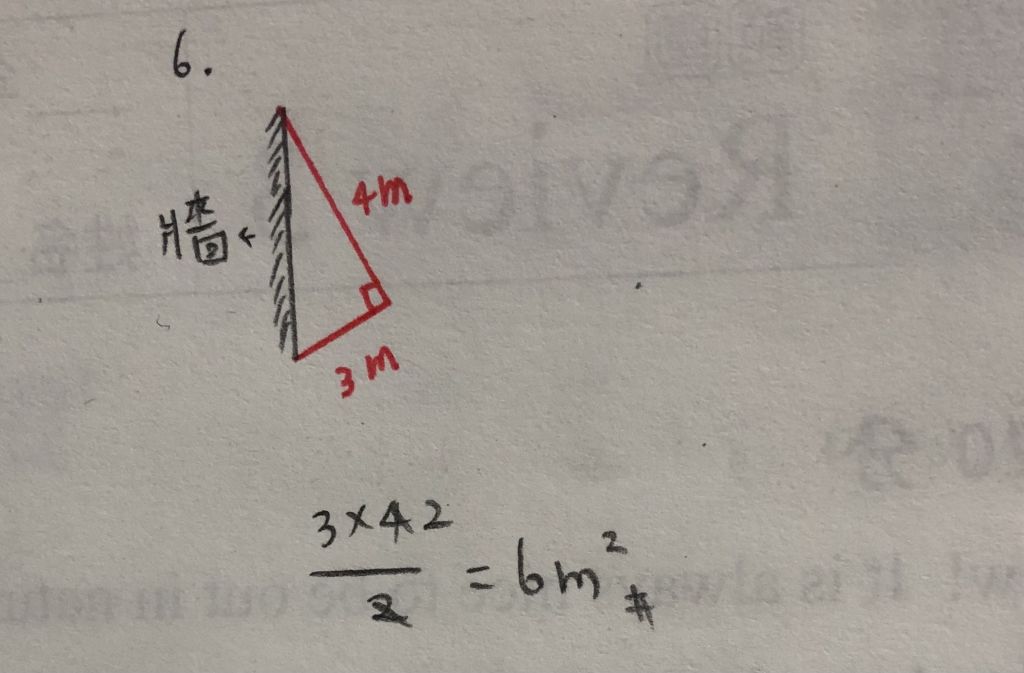 6.
4m
牆
←
3m
3×4 2
2
= 6m² #